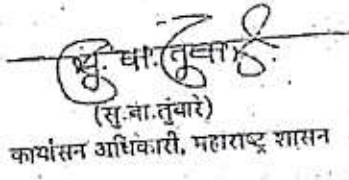 सु. वा. तुंबारे
(सु.वा.तुंबारे)
कार्यासन अधिकारी, महाराष्ट्र शासन